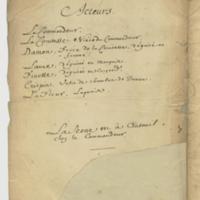 Acteurs.
Le Commandeur.
La Comtesse, Niece du Commandeur.
Damon, Frere de la Comtesse, déguisé en
femme.
déguisé en Marquis.
Finette,
Crispin, Valet de chambre de Damon.
La Fleur, Laquais.
La Scene est à Auteuil
chez le Commandeur